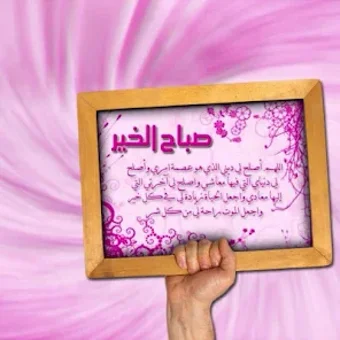 صباح الخير
اللهم أصلح لي ديني الذي هو عصمة أمري وأصلح
لي دنياي التي فيها معاشي وأصلح لي آخرتي التي
إليها معادي واجعل الحياة زيادة لي في كل خير
واجعل الموت راحة لي من كل شر